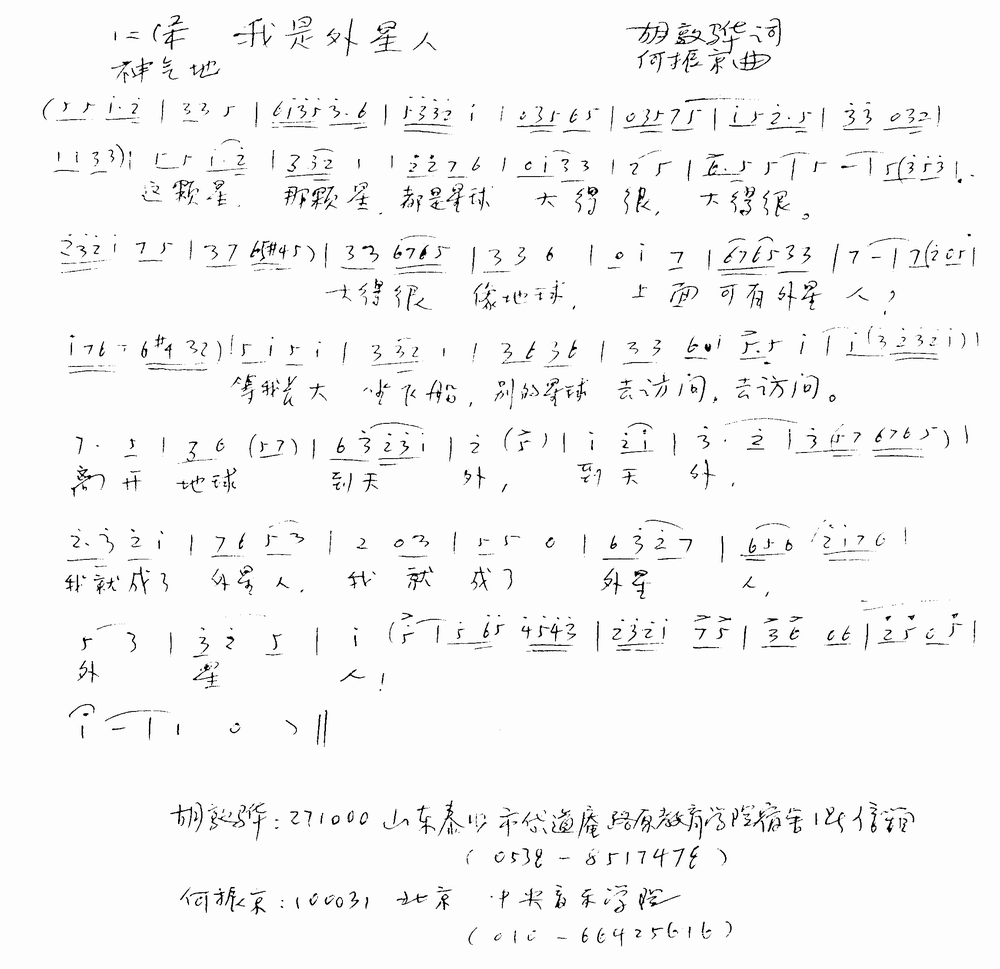 我是外星人 胡敦骅词
神气地 何振京曲
(5 5 i·2 | 3 3 5 | 6i35 3·6 | 5332 i | 03565 | 03575 | i 5 2·5 | 33 032 |
1 1 3 3) | 5 5 i·2 | 3 32 1 | 2 2 7 6 | 0 i 3 3 | 2 5 | 6·5 5 | 5 - | 5(353 |
这颗星, 那颗星, 都是星球 大得很, 大得很。
232i 7 5 | 3 7 65#45) | 3 3 6765 | 3 3 6 | 0 i 7 | 676533 | 7 - | 7(205 |
大得很 像地球, 上面可有外星人?
i76 6#432) | 5 i 5 i | 3 32 1 | 3 6 3 6 | 3 3 6 i | 5·5 i | i(3232i) |
等我长大 坐飞船, 别的星球 去访问, 去访问。
7· 5 | 3 6 (57) | 6 323i | 2 (5) | i 2i | 3· 2 | 3(57 6765) |
离开 地球 到天 外, 到天 外,
2·3 2 i | 76 53 | 2 03 | 5 5 0 | 6 32 7 | 656 2i76 |
我就成了 外星人, 我就成了 外星 人,
5 3 | 3 2 5 | i (5 | 5 65 4543 | 232i 75 | 36 06 | 2505 |
外 星 人!
i - | 1 0 ) ‖
胡敦骅: 271000 山东泰山市岱道庵路原教育学院宿舍1号信箱
(0538-8517478)
何振京: 100031 北京 中央音乐学院
(010-66425616)